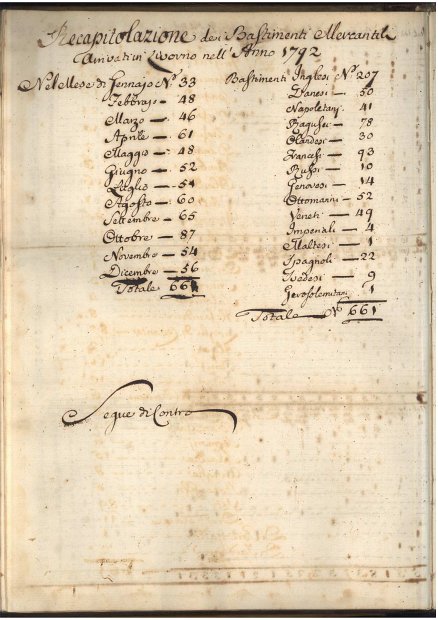 Recapitolazione dei Bastimenti Mercantili
Arrivati in Livorno nell'Anno 1792
Nel Mese di Gennajo Nº 33
Febbrajo - 48
Marzo - 46
Aprile - 61
Maggio - 48
Giugno - 52
Luglio - 51
Agosto - 60
Settembre - 65
Ottobre - 87
Novembre - 54
Dicembre - 56
Totale 661
Bastimenti Inglesi Nº 207
Danesi - 50
Napoletani 41
Ragusei - 78
Olandesi - 30
Francesi - 93
Russi - 10
Genovesi - 14
Ottomanni - 52
Veneti - 49
Imperiali - 4
Maltesi - 1
Spagnoli - 22
Svedesi - 9
Gerosolemitani 1
Totale Nº 661
Segue di Contro